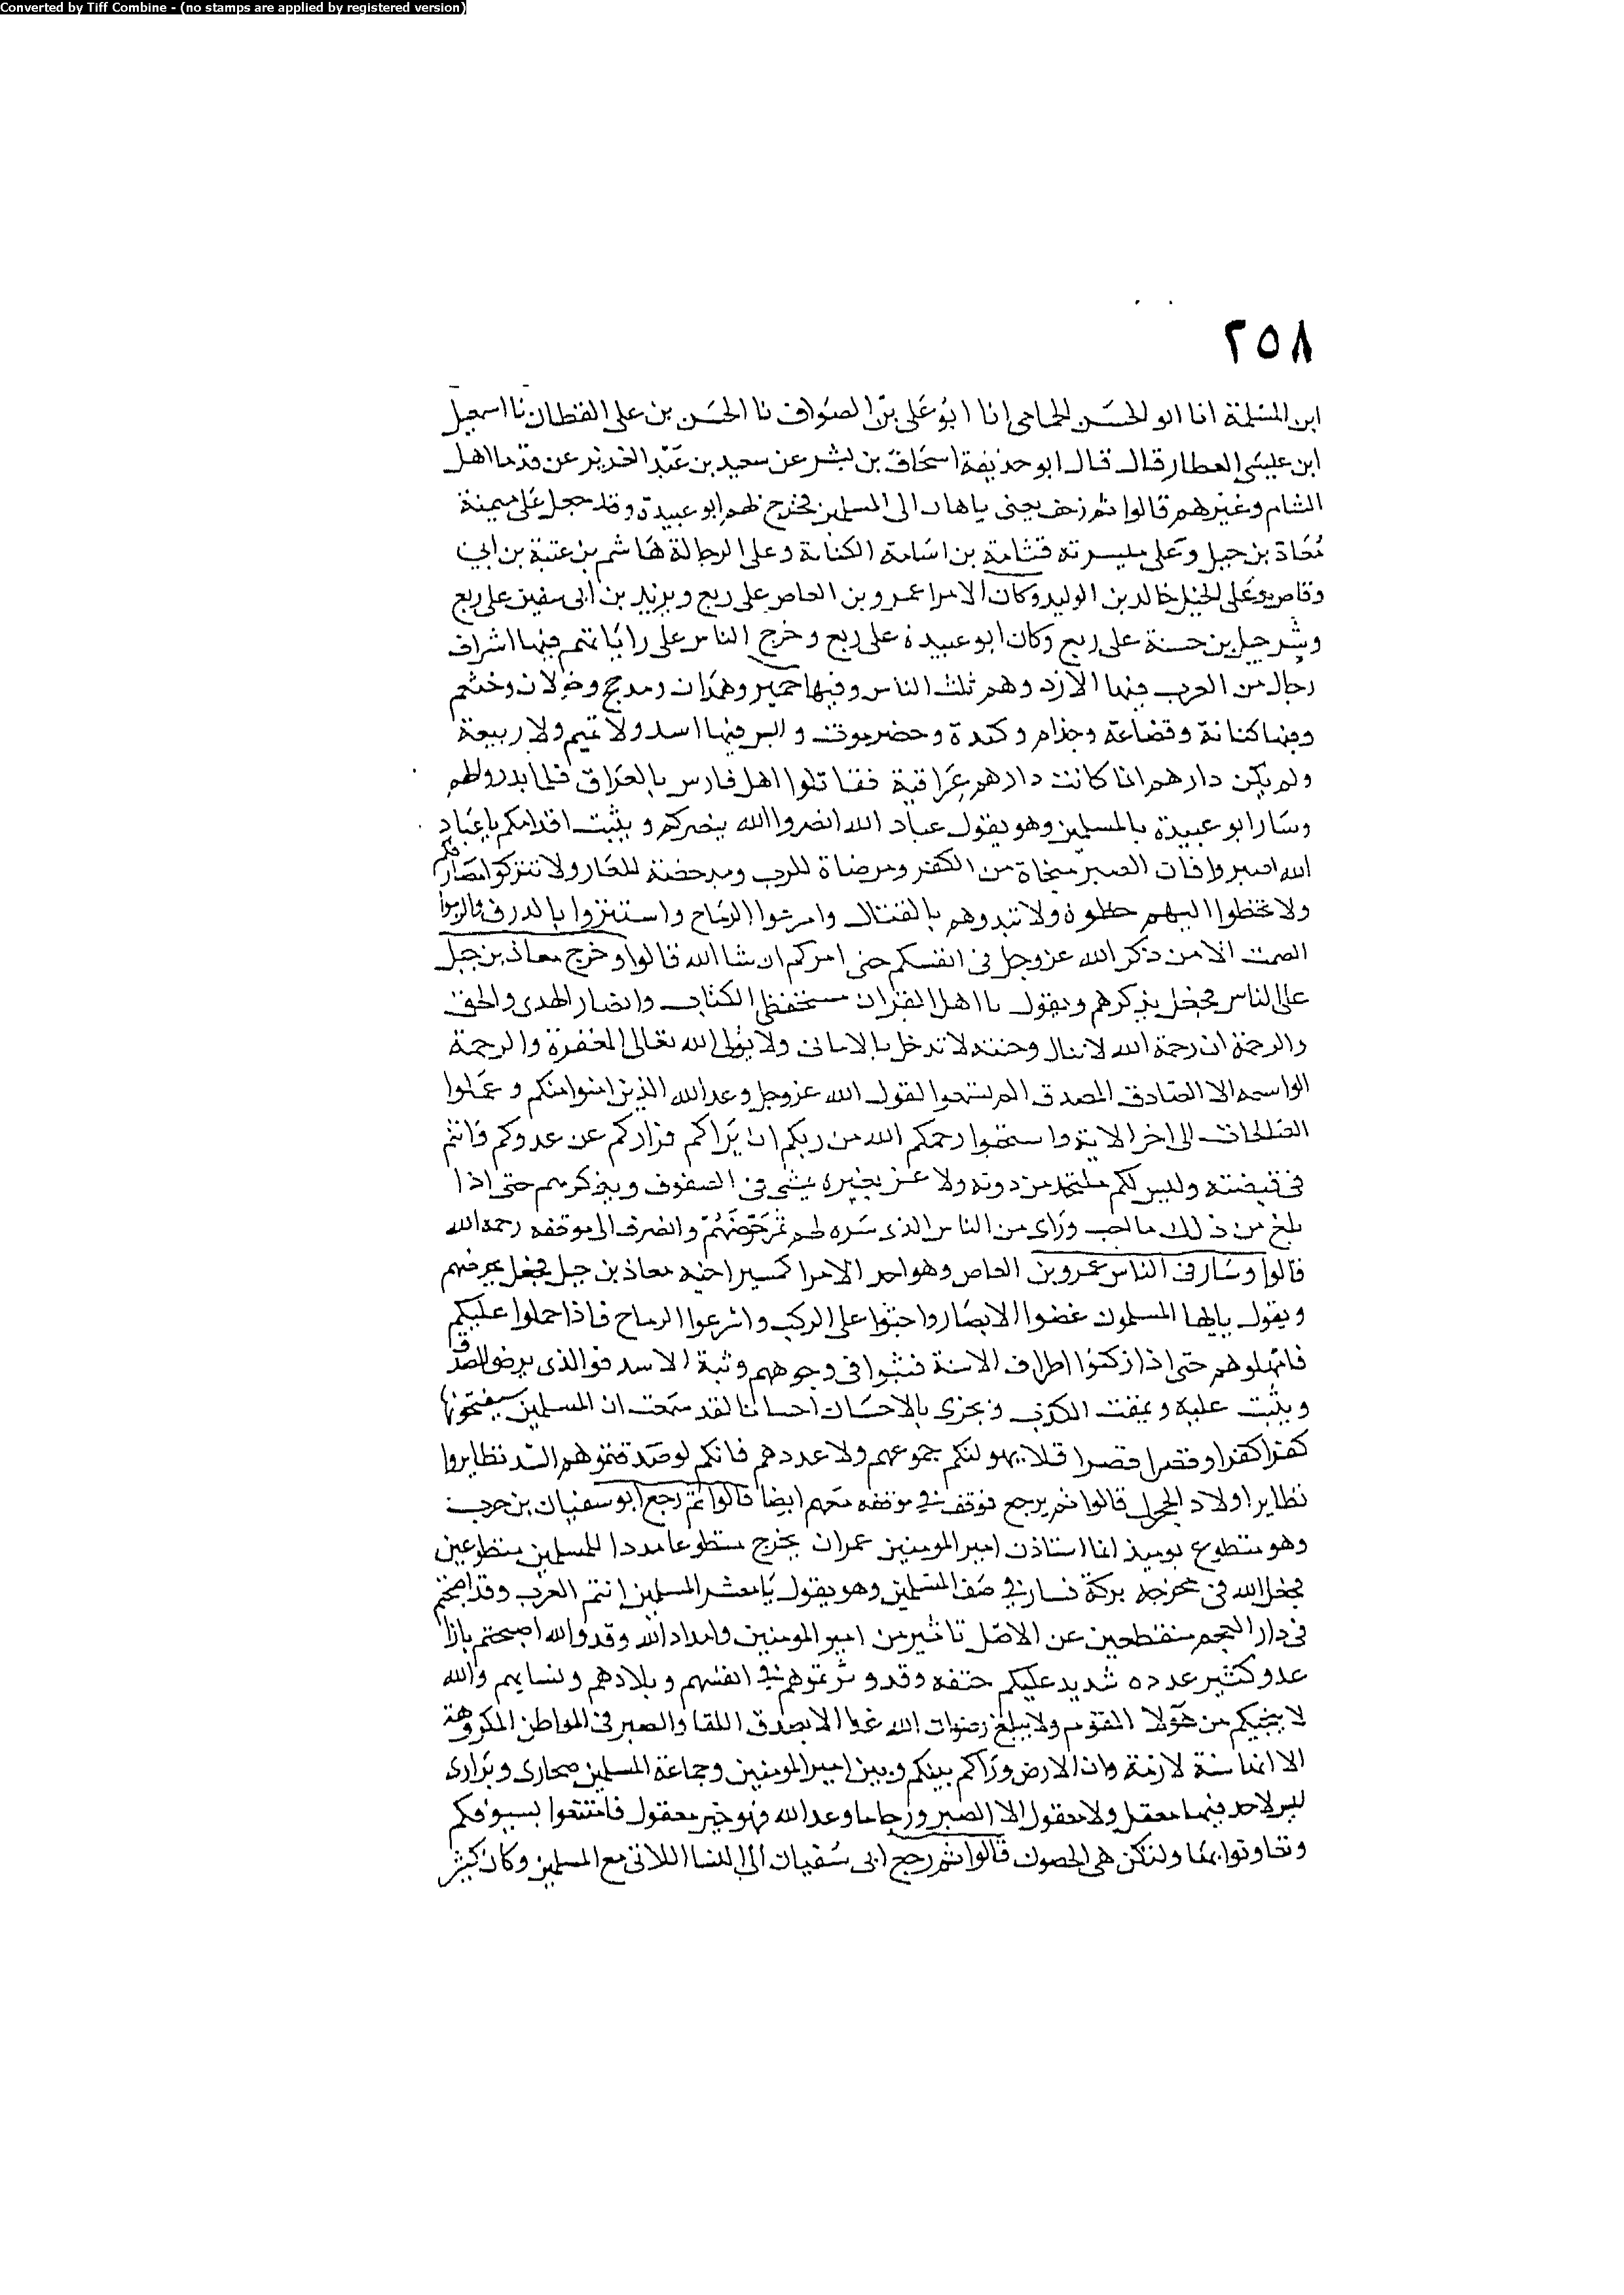 Converted by Tiff Combine - (no stamps are applied by registered version)
٢٥٨
ابن المسلمة انا ابو الحسن الحمامى انا ابو على بن الصواف نا الحسن بن على القطان نا اسمعيل
ابن عيسى العطار قال قال ابو حذيفة اسحاق بن بشر عن سعيد بن عبد العزيز عن قدما اهل
الشام وغيرهم قالوا ثم زحف يعنى باهان الى المسلمين فخرج لهم ابو عبيدة وقد جعل على ميمنة
معاذ بن جبل وعلى ميسرته قثامة بن اسامة الكنانة وعلى الرجالة هاشم بن عتبة بن ابى
وقاص وعلى الخيل خالد بن الوليد وكان الامرا عمرو بن العاص على ربع ويزيد بن ابى سفين على ربع
وشرحبيل بن حسنة على ربع وكان ابو عبيدة على ربع وخرج الناس على راياتهم فيها اشراف
رجال من العرب فيها الازد وهم ثلث الناس وفيها حمير وهمدان ومدحج وخولان وخثعم
وفيها كنانة وقضاعة وجذام وكندة وحضرموت وليس فيها اسد ولا تميم ولا ربيعة
ولم يكن دارهم انما كانت دارهم عراقية فقاتلوا اهل فارس بالعراق فلما ابدروا لهم
وسار ابو عبيدة بالمسلمين وهو يقول عباد الله انصروا الله ينصركم ويثبت اقدامكم يا عباد
الله اصبروا فان الصبر منجاة من الكفر ومرضاة للرب ومدحضة للعار ولا تتركوا مصافكم
ولا تخطوا اليهم خطوة ولا تبدوهم بالقتال واشرعوا الرماح واستتروا بالدرق والزموا
الصمت الا من ذكر الله عز وجل فى انفسكم حتى امركم ان شا الله قالوا وخرج معاذ بن جبل
على الناس فجعل يذكرهم ويقول يا اهل القران مستحفظى الكتاب وانصار الهدى والحق
والرحمة ان رحمة الله لا تنال وجنته لا تدخل بالامانى ولا يؤتى الله تعالى المغفرة والرحمة
الواسعه الا الصادق المصدق الم تسمعوا لقول الله عز وجل وعد الله الذين امنوا منكم وعملوا
الصالحات الى اخر الاية واستحيوا رحمكم الله من ربكم ان يراكم فراركم عن عدوكم وانتم
فى قبضته وليس لكم ملتحد من دونه ولا عز بغيره يمشى فى الصفوف ويذكرهم حتى اذا
بلغ من ذلك ما احب وراى من الناس الذى سره لهم ثم حرضهم وانصرف الى موقفه رحمه الله
قالوا وسار فى الناس عمرو بن العاص وهو احد الامرا كمسير اخيه معاذ بن جبل فجعل يحرضهم
ويقول يا ايها المسلمون غضوا الابصار واجثوا على الركب واشرعوا الرماح فاذا حملوا عليكم
فامهلوهم حتى اذا ركبوا اطراف الاسنة فثبوا فى وجوههم وثبة الاسد فوالذى يرضى الصدق
ويثبت عليه ويمقت الكذب ويجزى بالاحسان احسانا لقد سمعت ان المسلمين سيفتحونها
كفرا كفرا وقصرا قصرا فلا يهولنكم جموعهم ولا عددهم فانكم لو صدقتموهم الشد تطايروا
تطاير اولاد الحجل قالوا ثم يرجع فوقف فى موقفه معهم ايضا قالوا ثم رجع ابو سفيان بن حرب
وهو متطوع يوميذ انما استاذن امير المومنين عمر ان يخرج متطوعا مددا للمسلمين متطوعين
فجعل الله فى مخرجه بركة فسار فى صف المسلمين وهو يقول يا معشر المسلمين انتم العرب وقد اصبحتم
فى دار العجم منقطعين عن الاهل نائين من امير المومنين وامداد الله وقد والله اصبحتم بازا
عدو كثير عدده شديد عليكم حنقه وقد وترتموهم فى انفسهم وبلادهم ونسايهم والله
لا ينجيكم من هولا القوم ولا يبلغ رضوان الله غدا الا بصدق اللقا والصبر فى المواطن المكروهة
الا انها سنة لازمة وان الارض وراكم بينكم وبين امير المومنين وجماعة المسلمين صحارى وبرارى
ليس لاحد فيها معقل ولا معقول الا الصبر ورجا ما وعد الله فهو خير معقول فامتنعوا بسيوفكم
وتعاونوا بها ولتكن هى الحصون قالوا ثم رجع ابى سفيان الى النسا اللاتى مع المسلمين وكان كثير